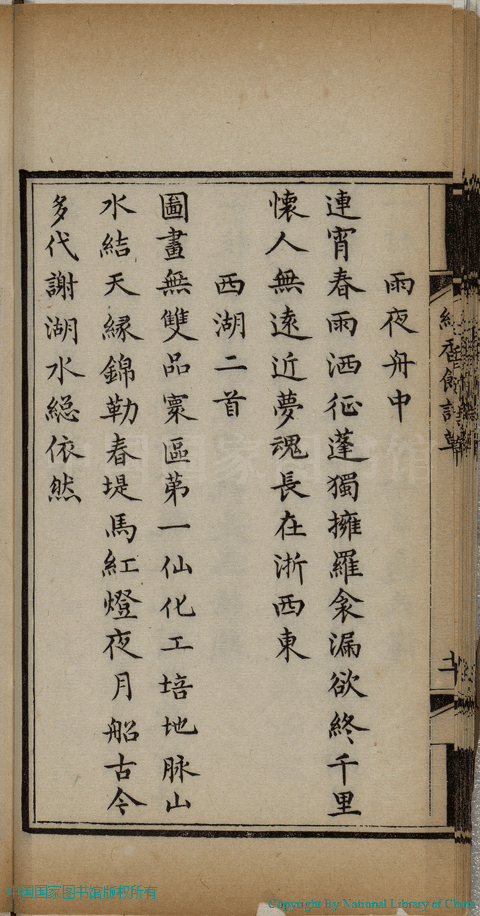 雨夜舟中
連宵春雨洒征蓬獨擁羅衾漏欲終千里
懷人無遠近夢魂長在浙西東
西湖二首
圖畫無雙品寰區第一仙化工培地脉山
水結天緣錦勒春堤馬紅燈夜月船古今
多代謝湖水総依然
中国国家图书馆版权所有
Copyright By National Library of China